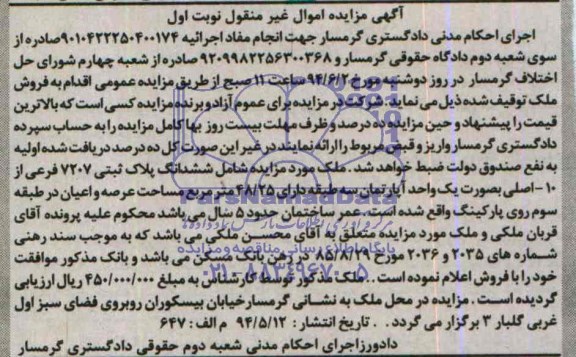 آگهی مزایده اموال غیر منقول نوبت اول
اجرای احکام مدنی دادگستری گرمسار جهت انجام مفاد اجرائیه ۹۰۱۰۴۲۲۲۵۰۴۰۰۱۷۴صادره از
سوی شعبه دوم دادگاه حقوقی گرمسار و ۹۲۰۹۹۸۲۲۵۶۳۰۰۳۶۸ صادره از شعبه چهارم شورای حل
اختلاف گرمسار در روز دوشنبه مورخ ۹۴/۶/۲ ساعت ۱۱ صبح از طریق مزایده عمومی اقدام به فروش
ملک توقیف شده ذیل می نماید. شرکت در مزایده برای عموم آزاد و برنده مزایده کسی است که بالاترین
قیمت را پیشنهاد و حین مزایده ده درصد و ظرف مهلت بیست روز بها کامل مزایده را به حساب سپرده
دادگستری گرمسار واریز و قبض مربوط را ارائه نمایند در غیر این صورت کل ده درصد دریافت شده اولیه
به نفع صندوق دولت ضبط خواهد شد. ملک مورد مزایده شامل ششدانگ پلاک ثبتی ۷۲۰۷ فرعی از
۱۰-اصلی بصورت یک واحد آپارتمان سه طبقه دارای ۴۸/۲۵ متر مربع مساحت عرصه و اعیان در طبقه
سوم روی پارکینگ واقع شده است. عمر ساختمان حدود ۵ سال می باشد محکوم علیه پرونده آقای
قربان ملکی و ملک مورد مزایده متعلق به آقای محسن ملکی می باشد که به موجب سند رهنی
شماره های ۲۰۳۵ و ۲۰۳۶ مورخ ۸۵/۸/۲۹ در رهن بانک مسکن می باشد و بانک مذکور موافقت
خود را با فروش اعلام نموده است.. ملک مذکور توسط کارشناس به مبلغ ۴۵۰/۰۰۰/۰۰۰ ریال ارزیابی
گردیده است. مزایده در محل ملک به نشانی گرمسار خیابان بیسکوران روبروی فضای سبز اول
غربی گلبار ۳ برگزار می گردد. . تاریخ انتشار: ۹۴/۵/۱۲ م الف: ۶۴۷
دادورز اجرای احکام مدنی شعبه دوم حقوقی دادگستری گرمسار
ParsNamadData
پایگاه اطلاع رسانی مناقصه و مزایده
۰۲۱-۸۸۳۴۹۶۷۰-۵